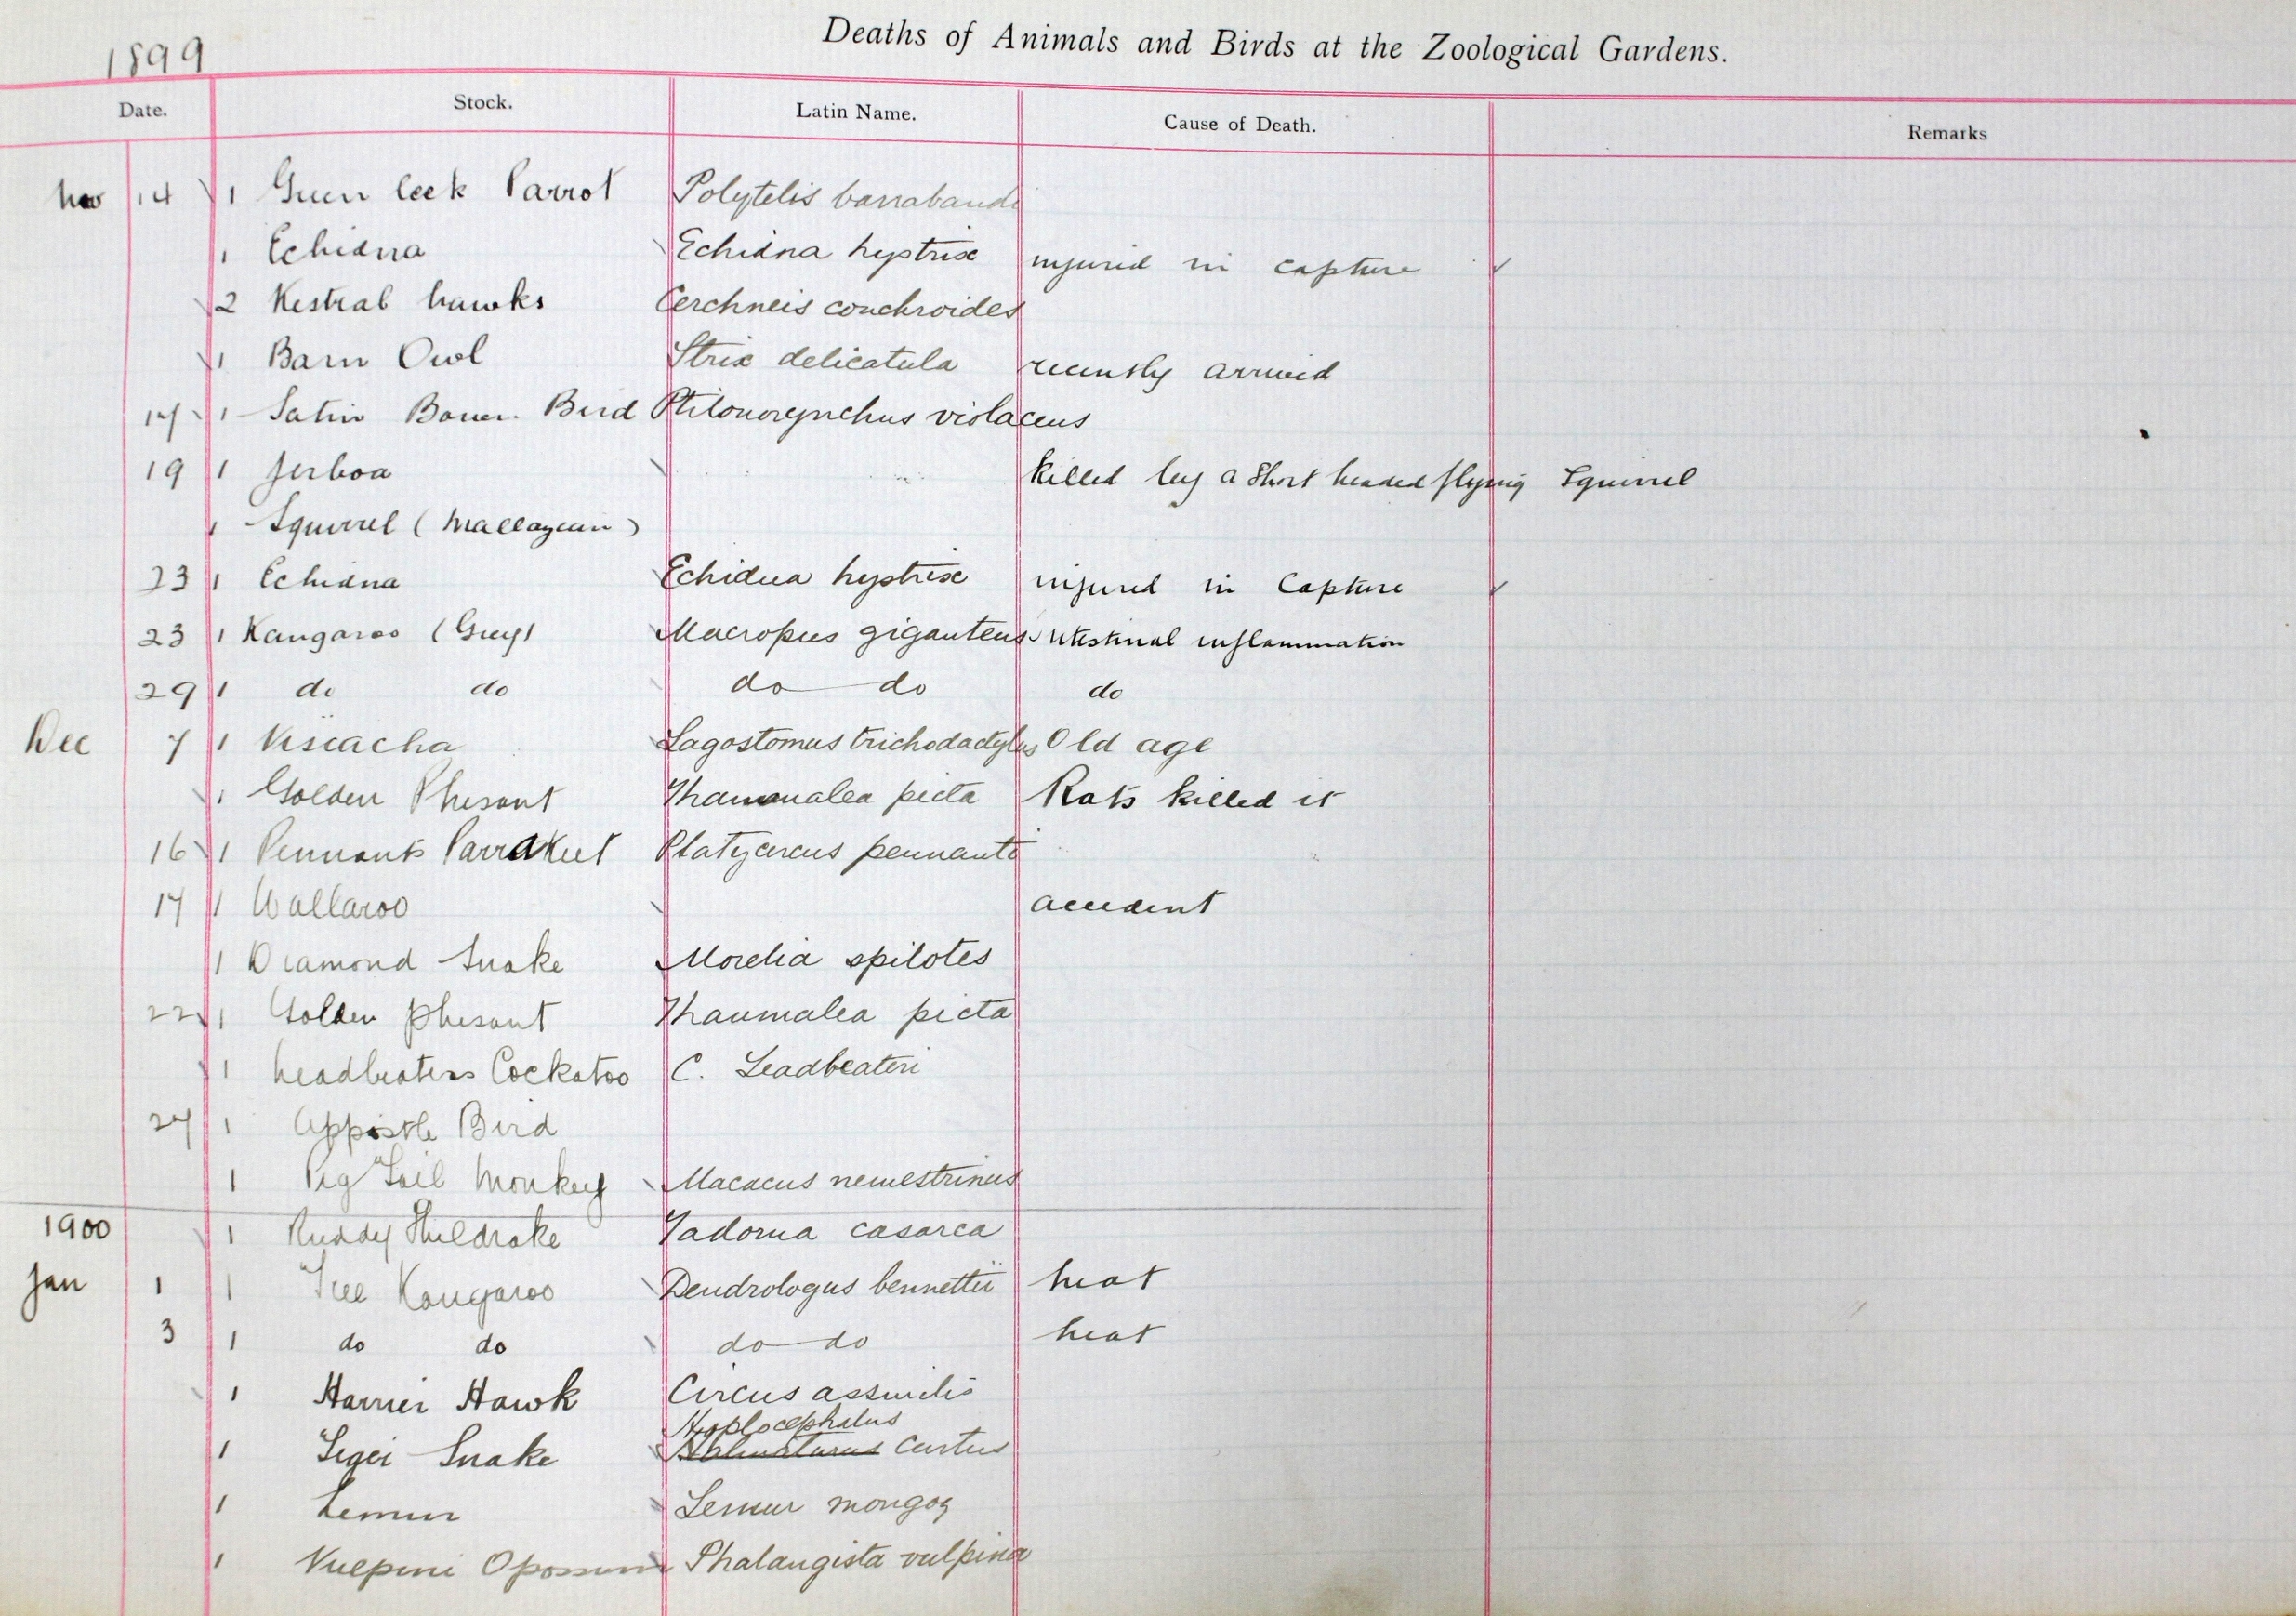 1899
Deaths of Animals and Birds at the Zoological Gardens.
Date. Stock. Latin Name. Cause of Death. Remarks
Nov 14 1 Green leek Parrot Polytelis barrabandi
1 Echidna Echidna hystrix injured in capture
2 Kestral hawks Cerchneis conchroides
1 Barn Owl Strix delicatula recently arrived
17 1 Satin Bower Bird Ptilonorynchus violaceus
19 1 Jerboa killed by a Short headed flying Squirrel
1 Squirrel (Mallayean)
23 1 Echidna Echidna hystrix injured in Capture
23 1 Kangaroo (Grey) Macropus giganteus intestinal inflammation
29 1 do do do do do
Dec 7 1 Viscacha Lagostomus trichodactylus Old age
1 Golden Phesant Thaumalea picta Rats killed it
16 1 Pennants Parrakeet Platycercus pennanti
17 1 Wallaroo accident
1 Diamond Snake Morelia spilotes
22 1 Golden phesant Thaumalea picta
1 Leadbeaters Cockatoo C. Leadbeateri
27 1 Appostle Bird
1 Pig Tail Monkey Macacus nemestrinus
1900 1 Ruddy Shildrake Tadorna casarca
Jan 1 1 Tree Kangaroo Dendrologus bennettii heat
3 1 do do do do heat
1 Harrier Hawk Circus assimilis
Hoplocephalus
1 Tiger Snake Halmaturus curtus
1 Lemur Lemur mongoz
1 Vulpine Opossum Phalangista vulpina